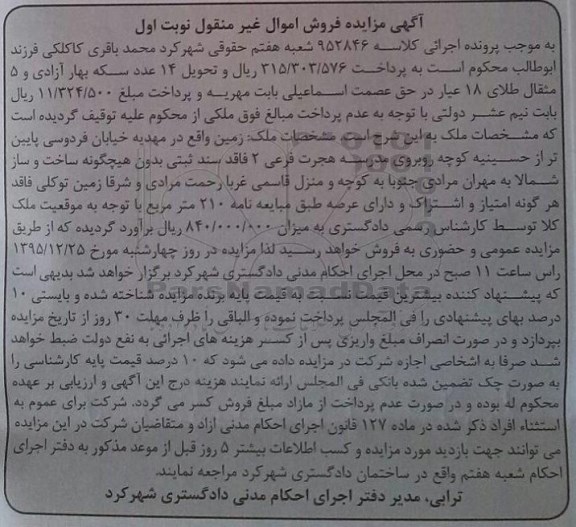 آگهی مزایده فروش اموال غیر منقول نوبت اول
به موجب پرونده اجرائی کلاسه ۹۵۲۸۴۶ شعبه هفتم حقوقی شهرکرد محمد باقری کاکلکی فرزند
ابوطالب محکوم است به پرداخت ۳۱۵/۳۰۳/۵۷۶ ریال و تحویل ۱۴ عدد سکه بهار آزادی و ۵
مثقال طلای ۱۸ عیار در حق عصمت اسماعیلی بابت مهریه و پرداخت مبلغ ۱۱/۳۲۴/۵۰۰ ریال
بابت نیم عشر دولتی با توجه به عدم پرداخت مبالغ فوق ملکی از محکوم علیه توقیف گردیده است
که مشخصات ملک به این شرح است مشخصات ملک: زمین واقع در مهدیه خیابان فردوسی پایین
تر از حسینیه کوچه روبروی مدرسه هجرت فرعی ۲ فاقد سند ثبتی بدون هیچگونه ساخت و ساز
شمالا به مهران مرادی جنوبا به کوچه و منزل قاسمی غربا رحمت مرادی و شرقا زمین توکلی فاقد
هر گونه امتیاز و اشتراک و دارای عرصه طبق مبایعه نامه ۲۱۰ متر مربع با توجه به موقعیت ملک
کلا توسط کارشناس رسمی دادگستری به میزان ۸۴۰/۰۰۰/۰۰۰ ریال برآورد گردیده که از طریق
مزایده عمومی و حضوری به فروش خواهد رسید لذا مزایده در روز چهارشنبه مورخ ۱۳۹۵/۱۲/۲۵
راس ساعت ۱۱ صبح در محل اجرای احکام مدنی دادگستری شهرکرد برگزار خواهد شد بدیهی است
که پیشنهاد کننده بیشترین قیمت نسبت به قیمت پایه برنده مزایده شناخته شده و بایستی ۱۰
درصد بهای پیشنهادی را فی المجلس پرداخت نموده و الباقی را ظرف مهلت ۳۰ روز از تاریخ مزایده
بپردازد و در صورت انصراف مبلغ واریزی پس از کسر هزینه های اجرائی به نفع دولت ضبط خواهد
شد صرفا به اشخاصی اجازه شرکت در مزایده داده می شود که ۱۰ درصد قیمت پایه کارشناسی را
به صورت چک تضمین شده بانکی فی المجلس ارائه نمایند هزینه درج این آگهی و ارزیابی بر عهده
محکوم له بوده و در صورت عدم پرداخت از مازاد مبلغ فروش کسر می گردد. شرکت برای عموم به
استثناء افراد ذکر شده در ماده ۱۲۷ قانون اجرای احکام مدنی ازاد و متقاضیان شرکت در این مزایده
می توانند جهت بازدید مورد مزایده و کسب اطلاعات بیشتر ۵ روز قبل از موعد مذکور به دفتر اجرای
احکام شعبه هفتم واقع در ساختمان دادگستری شهرکرد مراجعه نمایند.
ترابی، مدیر دفتر اجرای احکام مدنی دادگستری شهرکرد
ParsNamadData